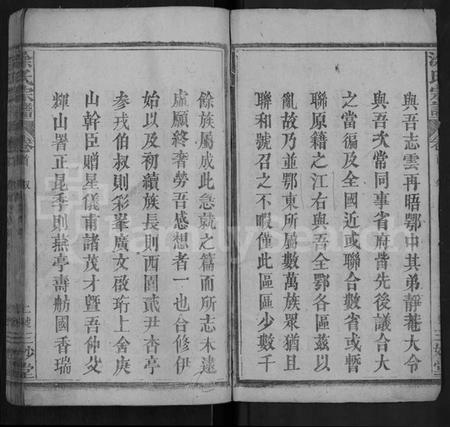 與吾志雲再晤鄂中其弟靜菴大令
與吾次常同事省府嘗先後議合大
之當徧及全國近或聯合數省或暫
聯原籍之江右與吾全鄂各區茲以
亂故乃並鄂東所屬數萬族眾猶且
聯和號召之不暇僅此區區少數千
餘族屬成此急就之篇而所志未逮
處願終奢勞吾感想者一也台修伊
始以及初續族長則西園貳尹杏亭
參戎伯叔則彩峯廣文啟珩上舍庚
山幹臣贈星儀甫諸茂才暨吾仲父
輝山署正昆季則燕亭壽舫國香瑞
涂氏宗譜
卷首
敘
妙堂